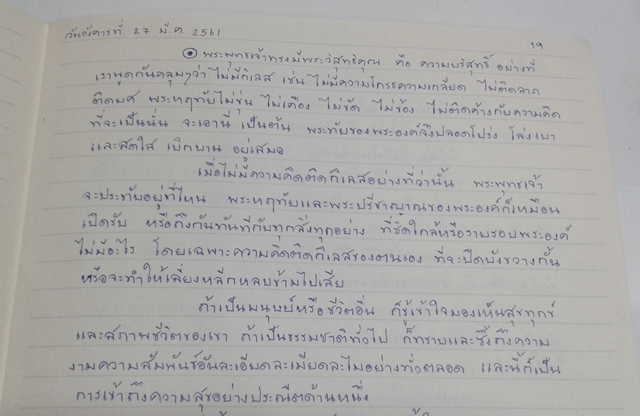 วันอังคารที่ 27 มี.ค. 2561
19
พระพุทธเจ้าทรงมีพระวิสุทธิคุณ คือ ความบริสุทธิ์ อย่างที่
เราพูดกันคลุมๆว่า ไม่มีกิเลส เช่น ไม่มีความโกรธความเกลียด ไม่ติดลาภ
ติดยศ พระหฤทัยไม่ขุ่น ไม่เคือง ไม่ขัด ไม่ข้อง ไม่ติดค้างกับความคิด
ที่จะเป็นนั่น จะเอานี่ เป็นต้น พระทัยของพระองค์จึงปลอดโปร่ง โล่งเบา
และสดใส เบิกบาน อยู่เสมอ
เมื่อไม่มีความคิดติดกิเลสอย่างที่ว่านั้น พระพุทธเจ้า
จะประทับอยู่ที่ไหน พระหฤทัยและพระปรีชาญาณของพระองค์ก็เหมือน
เปิดรับ หรือถึงกันทันทีกับทุกสิ่งทุกอย่าง ที่ชิดใกล้หรือรายรอบพระองค์
ไม่มีอะไร โดยเฉพาะความคิดติดกิเลสของตนเอง ที่จะปิดบังขวางกั้น
หรือจะทำให้เลี่ยงหลีกหลบข้ามไปเสีย
ถ้าเป็นมนุษย์หรือชีวิตอื่น ก็รู้เข้าใจมองเห็นสุขทุกข์
และสภาพชีวิตของเขา ถ้าเป็นธรรมชาติทั่วไป ก็ทราบและซึ้งถึงความ
งามความสัมพันธ์อันละเอียดละเมียดละไมอย่างทั่วตลอด และนี้ก็เป็น
การเข้าถึงความสุขอย่างประณีตด้านหนึ่ง